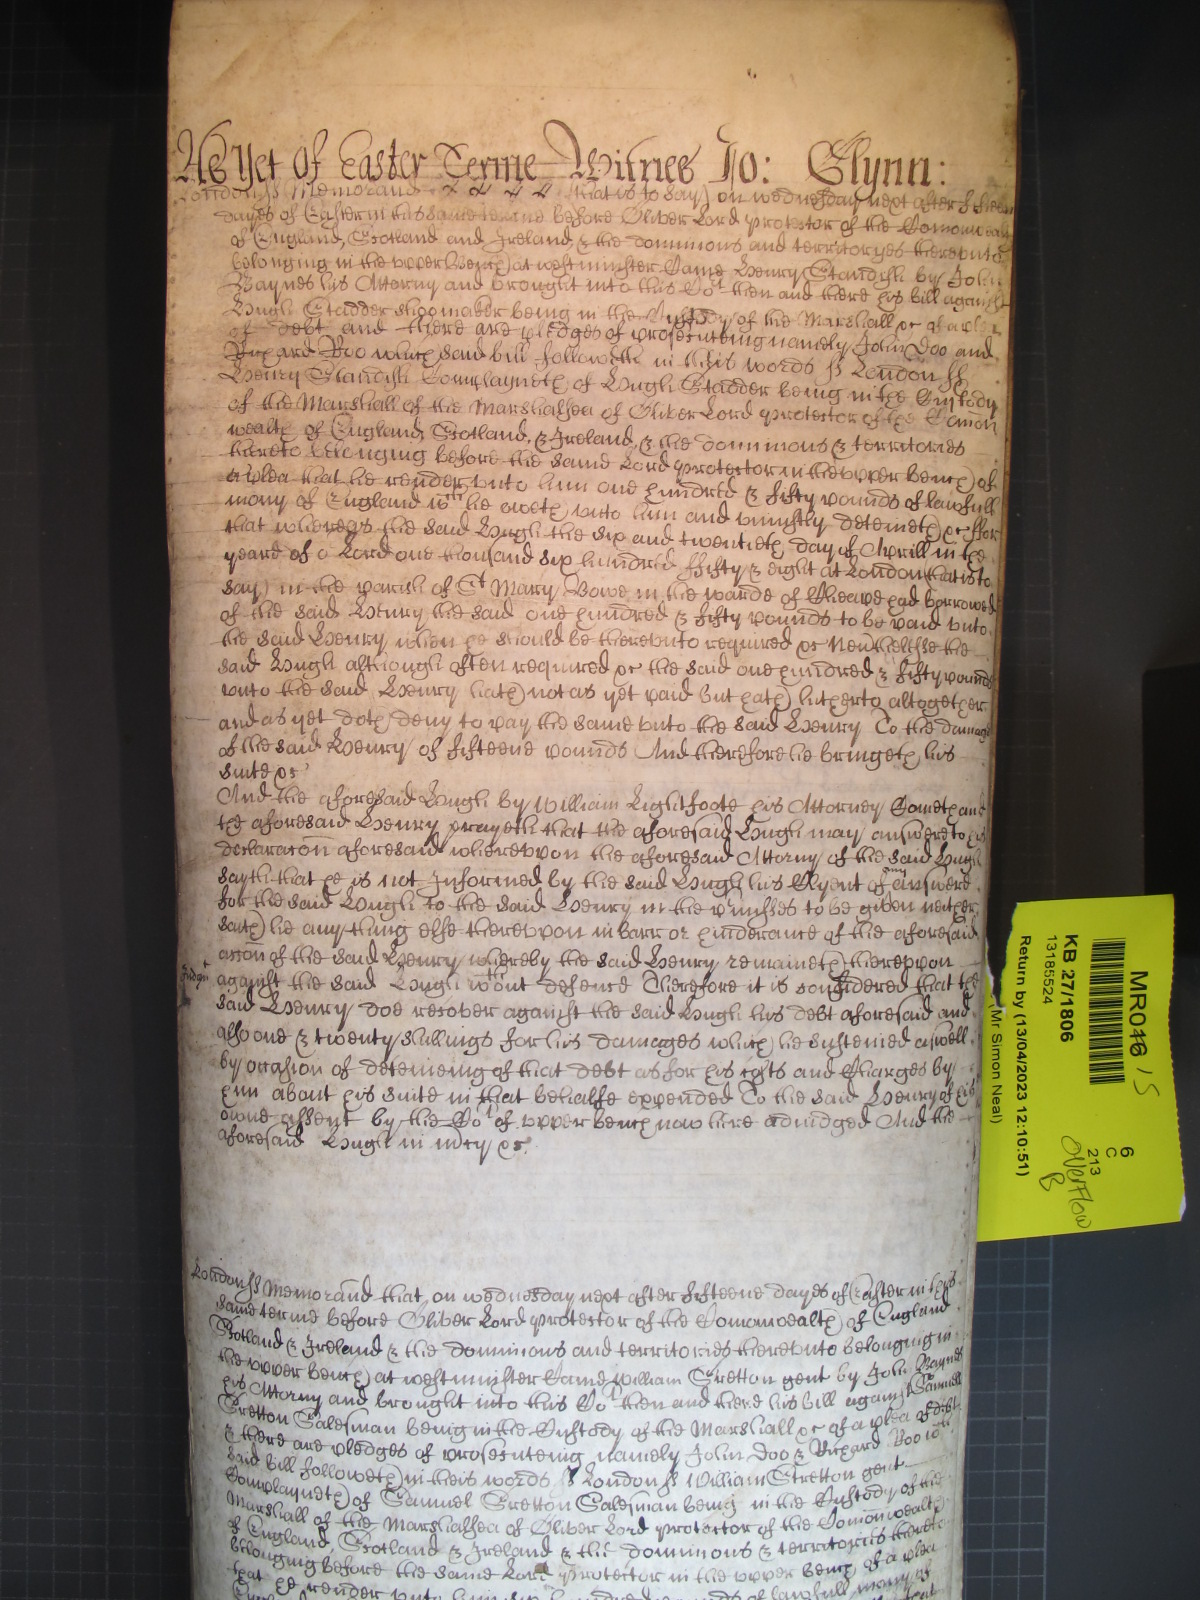 As Yet Of Easter Terme Witnes Jo: Glynn:
London ss Memorand that is to say on wednesday next after fifteen
dayes of Easter in this same terme before Oliver Lord protector of the Comonwealth
of England, Scotland and Ireland, & the dominions and territoryes thereunto
belonging in the upper bench at westminster Came Henry Standish by John
Baynes his Attorny and brought into this Cot then and there his bill against
Hugh Stadder shoomaker being in the Custody of the Marshall &c of a plea
of debt and there are pledges of prosecuteing namely John Doo and
Richard Roo which said bill followeth in theis words ss London ss
Henry Standish Complayneth of Hugh Stadder being in the Custody
of the Marshall of the Marshalsea of Oliver Lord protector of the Comon
wealth of England, Scotland, & Ireland, & the dominions & territories
thereto belonging before the same Lord protector in the upper bench of
a plea that he render unto him one hundred & fifty pounds of lawfull
mony of England wch he oweth unto him and uniustly deteineth &c ffor
that whereas the said Hugh the six and twentieth day of Aprill in the
yeare of o Lord one thousand six hundred ffifty & eight at London (that is to
say) in the parish of St Mary Bowe in the warde of Cheape had borrowed
of the said Henry the said one hundred & fifty pounds to be paid unto
the said Henry when he should be thereunto required &c Neuthelesse the
said Hugh although often required &c the said one hundred & fifty pounds
unto the said Henry hath not as yet paid but hath hitherto altogether
and as yet doth deny to pay the same unto the said Henry To the damage
of the said Henry of fifteene pounds And therefore he bringeth his
suite &c
And the aforesaid Hugh by William Lightfoote his Attorney Cometh and
the aforesaid Henry prayeth that the aforesaid Hugh may answere to his
declaracon aforesaid whereupon the aforesaid Attorny of the said Hugh
sayth that he is not Informed by the said Hugh his Clyent of any answere
for the said Hugh to the said Henry in the pmisses to be given neither
saith he any thing else thereupon in barr or hinderance of the aforesaid
accon of the said Henry whereby the said Henry remaineth thereupon
Judgt
against the said Hugh wthout defence Therefore it is considered that the
said Henry doe recover against the said Hugh his debt aforesaid and
also one & twenty shillings for his damages which he susteined aswell
by occasion of deteineing of that debt as for his costs and Charges by
him about his suite in that behalfe expended To the said Henry of his
owne assent by the Cot of upper bench now here adiudged And the
aforesaid Hugh in mcy &c
London ss Memorand that on wednesday next after fifteene dayes of Easter in this
same terme before Oliver Lord protector of the Comonwealth of England
Scotland & Ireland & the dominions and territories thereunto belonging in
the upper bench at westminster Came William Stretton gent by John Baynes
his Attorny and brought into this Cot then and there his bill against Samuell
Stretton Salesman being in the Custody of the Marshall &c of a plea of debt
& there are pledges of prosecuteing namely John Doo & Richard Roo wch
said bill followeth in theis words ss London ss William Stretton gent
Complayneth of Samuel Stretton Salesman being in the Custody of the
Marshall of the Marshalsea of Oliver Lord protector of the Comonwealth
of England, Scotland & Ireland & the dominions & territories thereto
belonging before the same Lord protector in the upper bench of a plea
that he render unto him hundred pounds of lawfull mony of
MR046 15
KB 27/1806
13185524
Return by (13/04/2023 12:10:51)
(Mr Simon Neal)
6
C
213
Overflow
B